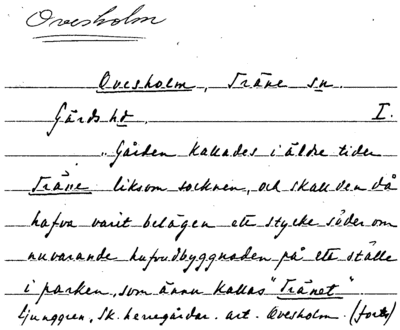 Ovesholm
Ovesholm, Träne sn.
Gärds hd. I.
"Gården kallades i äldre tider
Träne liksom socknen, och skall den då
hafva varit belägen ett stycke söder om
nuvarande hufvudbyggnaden på ett ställe
i parken, som ännu kallas "Tränet"
Ljunggren, Sk. herregårdar. art. Ovesholm. (forts)